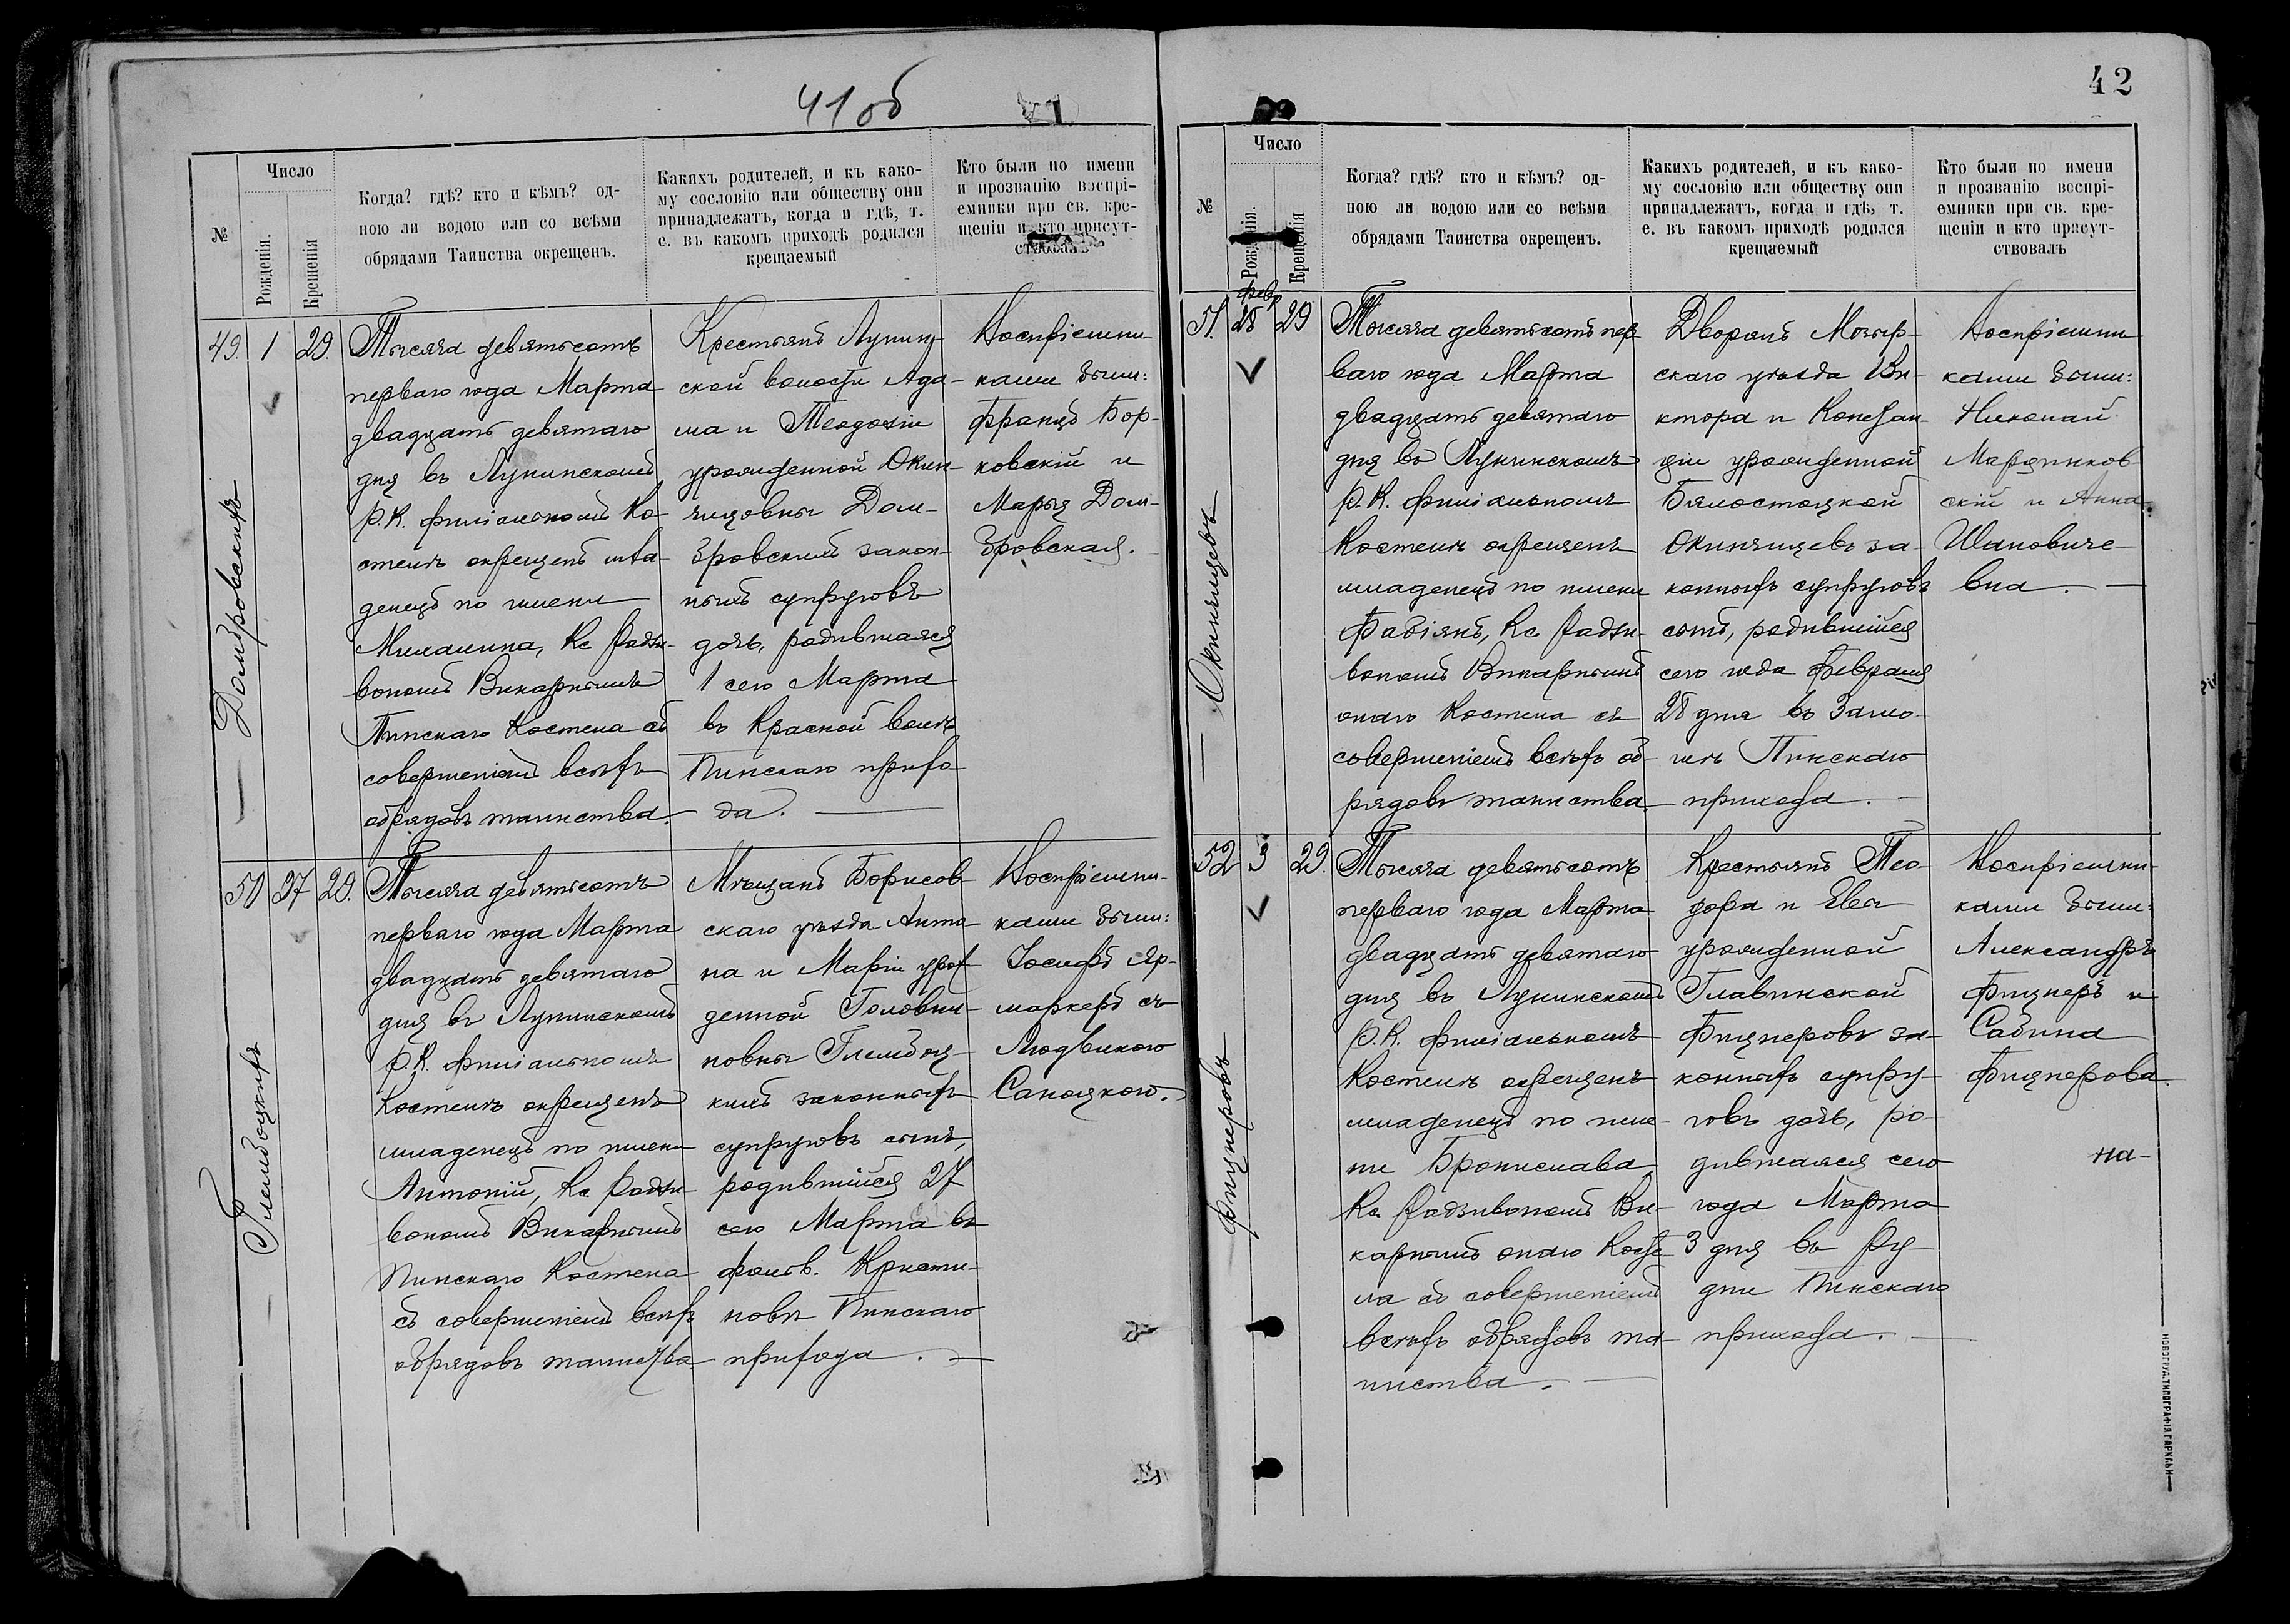 41 об
№
Число
Рожденія.
Крещенія
Когда? гдѣ? кто и кѣмъ? од-
ною ли водою или со всѣми
обрядами Таинства окрещенъ.
Какихъ родителей, и къ како-
му сословію или обществу они
принадлежатъ, когда и гдѣ, т.
е. въ какомъ приходѣ родился
крещаемый
Кто были по имени
и прозванію воспрі-
емники при св. кре-
щеніи и кто присут-
ствовалъ
49. 1 29.
Домбровскихъ
Тысяча девятьсотъ
перваго года Марта
двадцать девятаго
дня въ Лунинскомъ
Р.К. филіальномъ Ко-
стелѣ окрещенъ мла-
денецъ по имени
Михалина, Кс Радзи-
вономъ Викарнымъ
Пинскаго Костела съ
совершеніемъ всѣхъ
обрядовъ таинства.
Крестьянъ Лунин-
ской волости Ада-
ма и Теодозіи
урожденной Окин-
чицовны Дом-
бровскихъ закон-
ныхъ супруговъ
дочь, родившаяся
1 сего Марта
въ Красной волѣ
Пинскаго прихо-
да.
Воспріемни-
ками были:
Францъ Бор-
ковскій и
Марья Дом-
бровская.
50 27 29.
Глембоцкихъ
Тысяча девятьсотъ
перваго года Марта
двадцать девятаго
дня въ Лунинскомъ
Р.К. филіальномъ
Костелѣ окрещенъ
младенецъ по имени
Антоній, Кс Радзи-
вономъ Викарнымъ
Пинскаго Костела
съ совершеніемъ всѣхъ
обрядовъ таинства
Мѣщанъ Борисов-
скаго уѣзда Анто-
на и Маріи урож
денной Головни-
новны Глембоц-
кихъ законныхъ
супруговъ сынъ,
родившійся 27
сего Марта въ
фольв. Кристи-
ново Пинскаго
прихода.
Воспріемни-
ками были:
Іосифъ Яр-
маркеръ съ
Людвикою
Саноцкою.
42
№
Число
Рожденія.
Крещенія
Когда? гдѣ? кто и кѣмъ? од-
ною ли водою или со всѣми
обрядами Таинства окрещенъ.
Какихъ родителей, и къ како-
му сословію или обществу они
принадлежатъ, когда и гдѣ, т.
е. въ какомъ приходѣ родился
крещаемый
Кто были по имени
и прозванію воспрі-
емники при св. кре-
щеніи и кто присут-
ствовалъ
февр
51. 28 29
Окинчицевъ
Тысяча девятьсотъ пер-
ваго года Марта
двадцать девятаго
дня въ Лунинскомъ
Р.К. филіальномъ
Костелѣ окрещенъ
младенецъ по имени
Фабіянъ, Кс Радзи-
вономъ Викарнымъ
онаго Костела съ
совершеніемъ всѣхъ об-
рядовъ таинства.
Дворянъ Мозыр-
скаго уѣзда Ви-
ктора и Констан-
ціи урожденной
Бялостоцкой
Окинчицевъ за-
конныхъ супруговъ
сынъ, родившійся
сего года Февраля
28 дня въ Замо-
шьѣ Пинскаго
прихода.
Воспріемни
ками были:
Николай
Марцинков
скій и Анна
Шановиче-
вна.
52 3 29.
Фицнеровъ
Тысяча девятьсотъ
перваго года Марта
двадцать девятаго
дня въ Лунинскомъ
Р.К. филіальномъ
Костелѣ окрещенъ
младенецъ по име-
ни Бронислава
Кс Радзивономъ Ви-
карнымъ онаго Косте
ла съ совершеніемъ
всѣхъ обрядовъ та-
инства.
Крестьянъ Тео-
дора и Евы
урожденной
Главинской
Фицнеровъ за-
конныхъ супру-
говъ дочь, ро-
дившаяся сего
года Марта
3 дня въ Ру-
дни Пинскаго
прихода.
Воспріемни-
ками были:
Александръ
Фицнеръ и
Сабина
Фицнерова.
на-
НОВОГРУД. ТИПОГРАФІЯ ГАРКАВИ